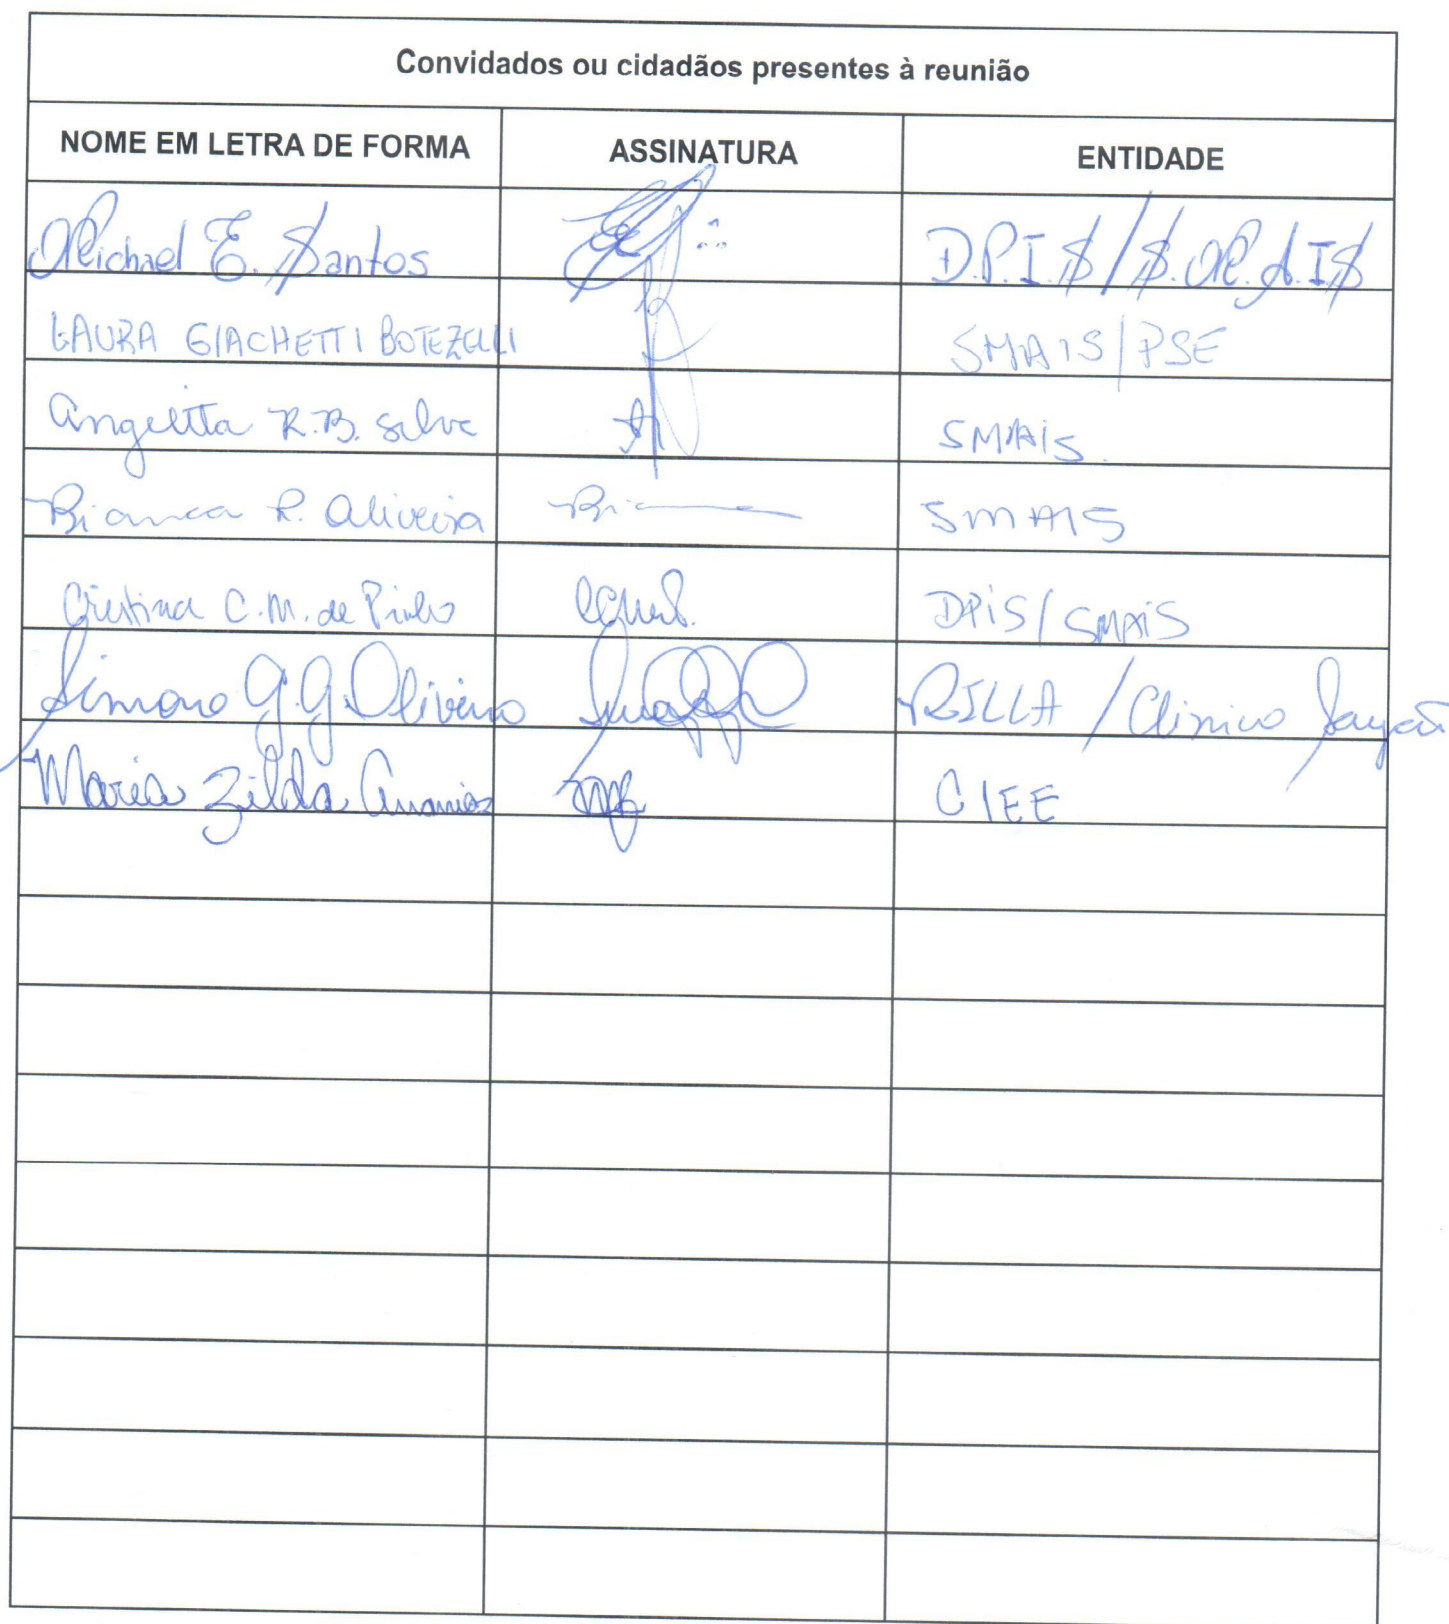 Convidados ou cidadãos presentes à reunião
NOME EM LETRA DE FORMA ASSINATURA ENTIDADE
Michael E. Santos D.P.I.S/S.M.A.I.S
LAURA GIACHETTI BOTEZELLI SMAIS/PSE
Angelita R.B. Silva SMAIS
Bianca R. Oliveira SMAIS
Cristina C.M. de Pinho DPIS/SMAIS
Simone G.G. Oliveira / Clinica
Maria Zilda Ananias CIEE